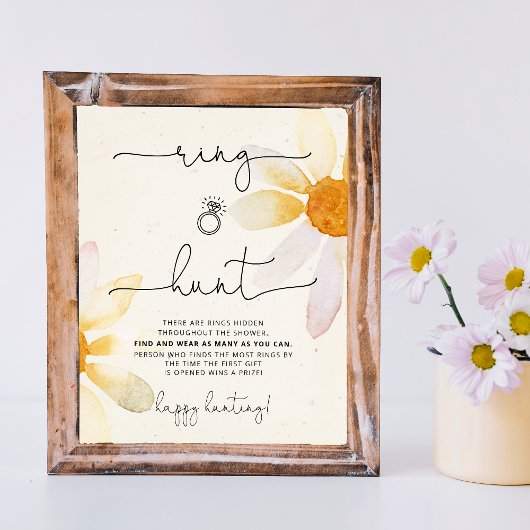 ring
hunt
THERE ARE RINGS HIDDEN
THROUGHOUT THE SHOWER.
FIND AND WEAR AS MANY AS YOU CAN.
PERSON WHO FINDS THE MOST RINGS BY
THE TIME THE FIRST GIFT
IS OPENED WINS A PRIZE!
happy hunting!